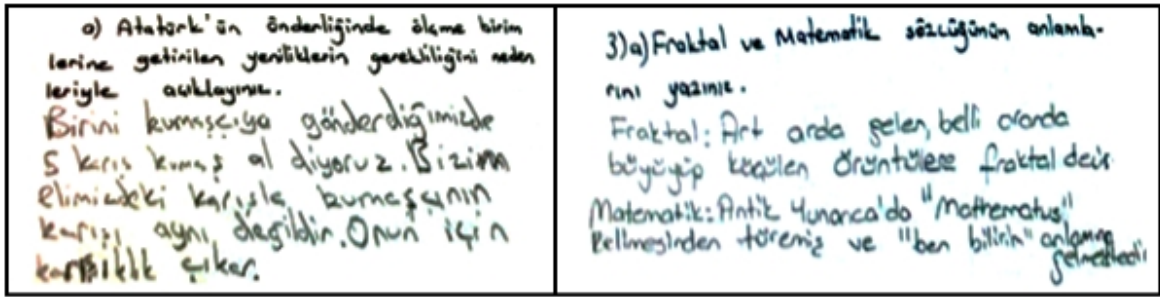 a) Atatürk'ün önderliğinde ölçme birim
lerine getirilen yeniliklerin gerekliliğini neden
leriyle açıklayınız.
Birini kumaşçıya gönderdiğimizde
5 karış kumaş al diyoruz. Bizim
elimizdeki karışla kumaşçının
karışı aynı değildir. Onun için
karışıklık çıkar.
3)a) Fraktal ve Matematik sözcüğünün anlamla-
rını yazınız.
Fraktal: Art arda gelen, belli oranda
büyüyüp küçülen örüntülere fraktal denir
Matematik: Antik Yunanca'da "Mathematus"
kelimesinden türemiş ve "ben bilirim" anlamına